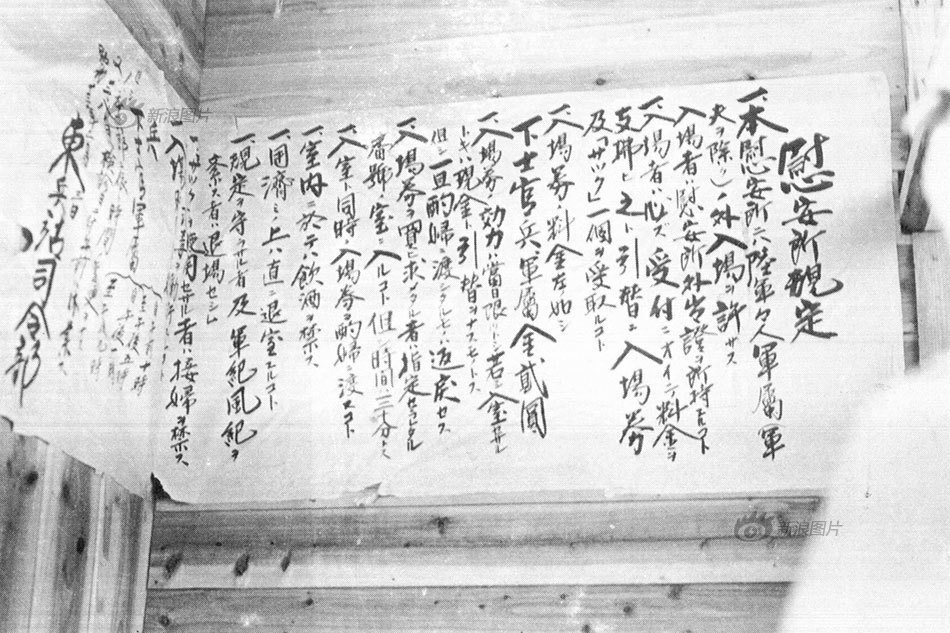 慰安所規定
一、本慰安所ニハ陸軍々人軍屬軍
夫ヲ除ク)ノ外入場ヲ許サス
入場者ハ慰安所外出證ヲ所持スルコト
一、入場者ハ必ス受付ニオイテ料金ヲ
支拂ヒ之ト引替ニ入場券
及「サック」一個ヲ受取ルコト
一、入場券ノ料金左ノ如シ
下士官、兵、軍屬 金貳圓
一、入場券ノ効力ハ當日限リトシ若シ入室セサル
トキハ現金ト引替ヲナスモノトス
但シ一旦酌婦ニ渡シタルモノハ返戻セス
一、入場券ヲ買ヒ求メタル者ハ指定セラレタル
番號ノ室ニ入ルコト但シ時間ハ三十分トス
一、入室ト同時ニ入場券ヲ酌婦ニ渡スコト
一、室内ニ於テハ飲酒ヲ禁ス
一、用濟ミノ上ハ直ニ退室スルコト
一、規定ヲ守ラサル者及軍紀風紀ヲ
紊ス者ハ退場セシム
一、サックヲ使用セサル者ハ接婦ヲ禁ス
東兵站司令部
新浪图片
新浪图片